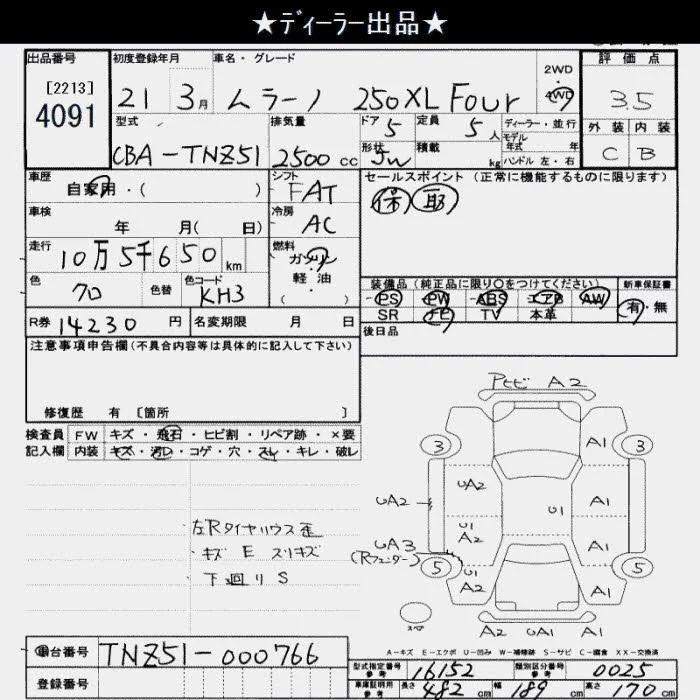 ★ディーラー出品★
出品番号
[2213]
4091
初度登録年月
21 3月
車名・グレード
ムラーノ 250XL FOUR
2WD
4WD
評価点
3.5
外装 内装
C B
型式
CBA-TNZ51
排気量
2500cc
ドア 5
形状 5W
定員 5人
積載 kg
ディーラー・並行
モデル
年式 年
ハンドル 左・右
車歴
自家用・( )
シフト
FAT
車検
年 月( 日)
冷房
AC
走行
10万5千650km
燃料
ガソリン
軽油
( ・ )
色
クロ
色替
色コード
KH3
R券 14230円
名変期限 月 日
セールスポイント (正常に機能するものに限ります)
保 取
装備品 (純正品に限り○をつけてください)
PS PW ABS エアB AW
SR ナビ TV 本革
新車保証書
有・無
後日品
注意事項申告欄(不具合内容等は具体的に記入して下さい)
修復歴 有 〔箇所 〕
検査員
記入欄
FW キズ・飛石・ヒビ割・リペア跡・×要
内装 キズ・汚レ・コゲ・穴・スレ・キレ・破レ
左Rタイヤハウス歪
キズ E スリキズ
下廻り S
Pヒビ A2
3
A1
3
UA2
UA2
U1
A1
U1
A2
A1
UA3
(Rフェンダー)
5
U1
A2
A1
5
スペア
A2 UA1 A1
A-キズ E-エクボ U-凹み W-補修跡 S-サビ C-腐食 XX-交換済
車台番号
TNZ51-000766
登録番号
型式指定番号
参考
16152
類別区分番号
参考
0025
車庫証明用
参考
長さ 482cm
幅 189cm
高さ 170cm